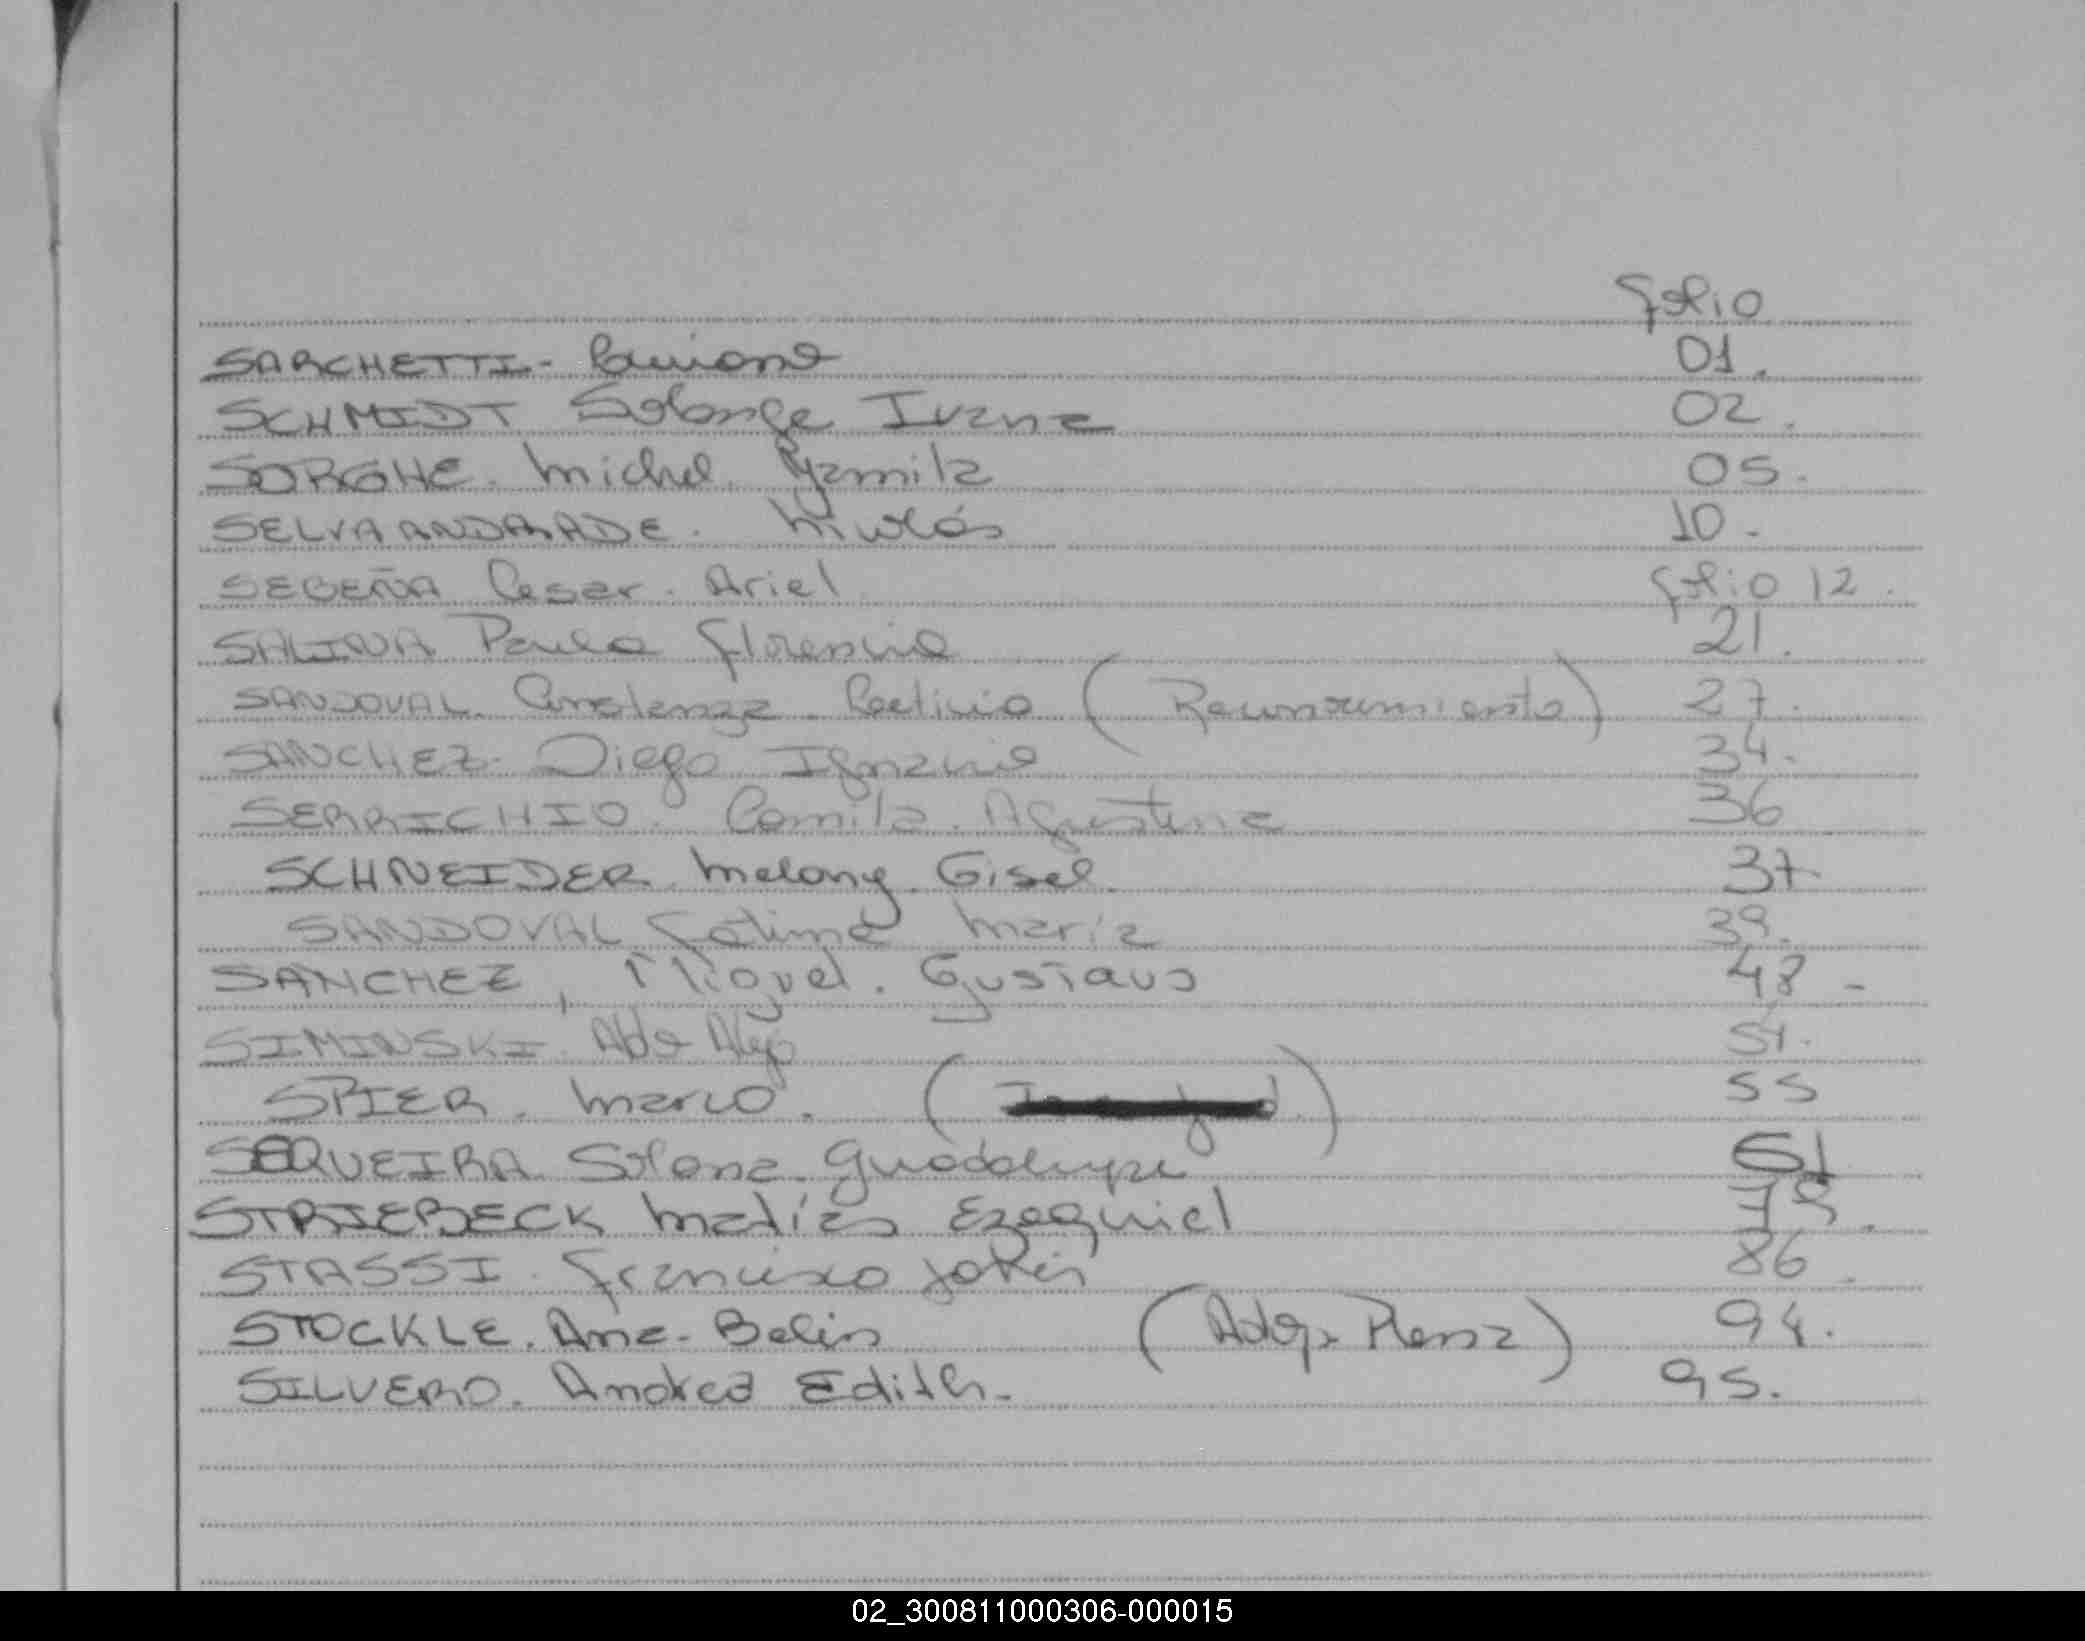 folio
SARCHETTI - 01.
SCHMIDT Solange Ivana 02.
SORGHE. Michel. Yamila 05.
SELVA ANDRADE. Nicolás 10.
SEGEÑA Cesar. Ariel folio 12.
SALINA Paula Florencia 21.
SANDOVAL. Constanza. Leticia (Reconocimiento) 27.
SANCHEZ. Diego Ignacio 34.
SERRICHIO. Camila. Agustina 36
SCHNEIDER. Melany. Gisel. 37.
SANDOVAL Fatima María 39.
SANCHEZ, Miguel. Gustavo 48 -
SIMINSKI. 51.
SPIER. Marco. 55
SEQUEIRA Solana. Guadalupe 61
STRIEBECK Matías Ezequiel 79.
STASSI. Francisco 86.
STOCKLE. Ana. Belén (Adop. Plena) 94.
SILVERO. Andrea Edith. 95.
02_300811000306-000015